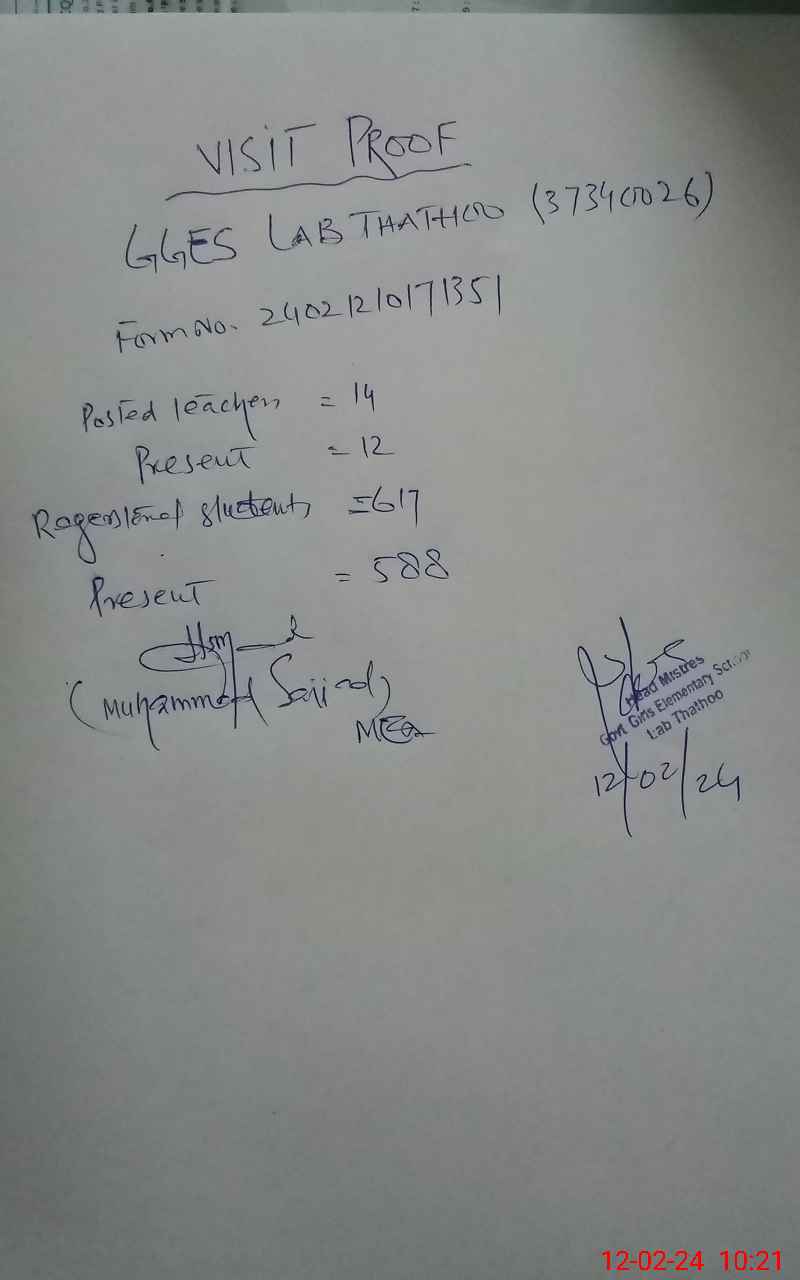 VISIT PROOF
GGES LAB THATHOO (37340026)
Form No. 24021210171351
Posted teachers = 14
Present = 12
Regerstered students = 617
Present = 588
(Muhammad Sajjad)
MEA
Head Mistres
Govt. Girls Elementary School
Lab Thathoo
12/02/24
12-02-24 10:21